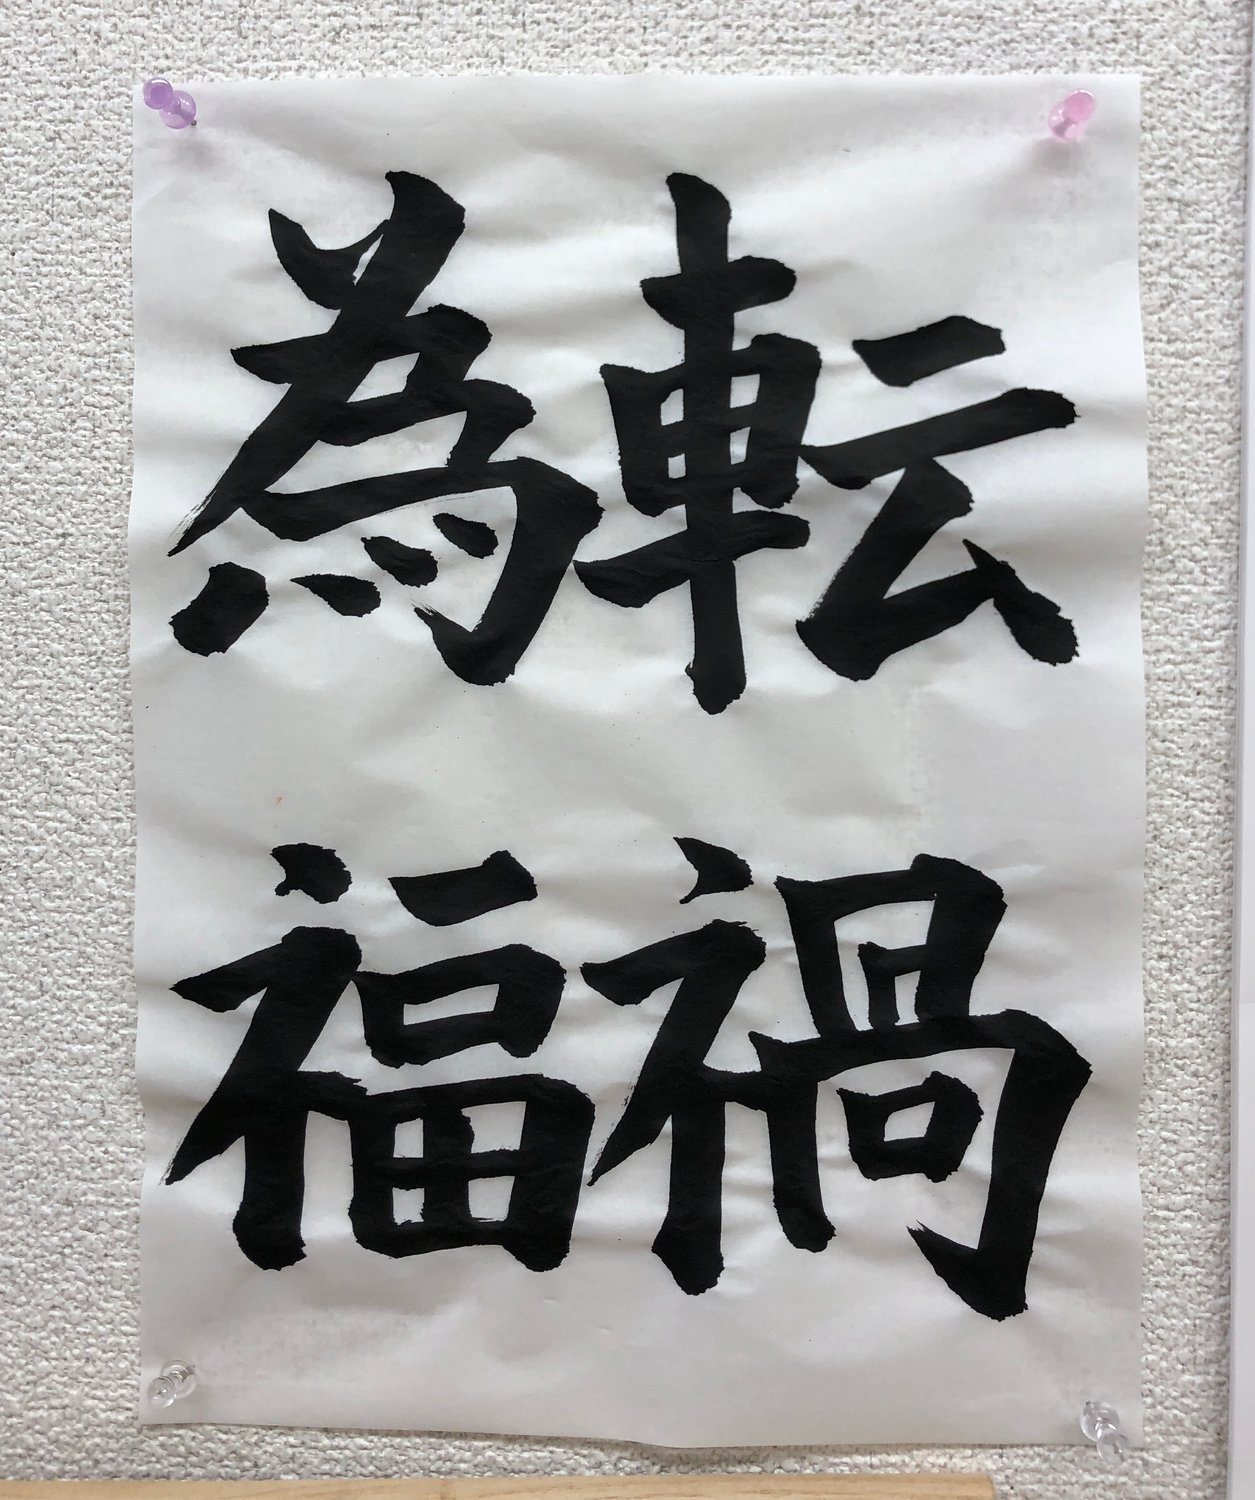 転禍
為福